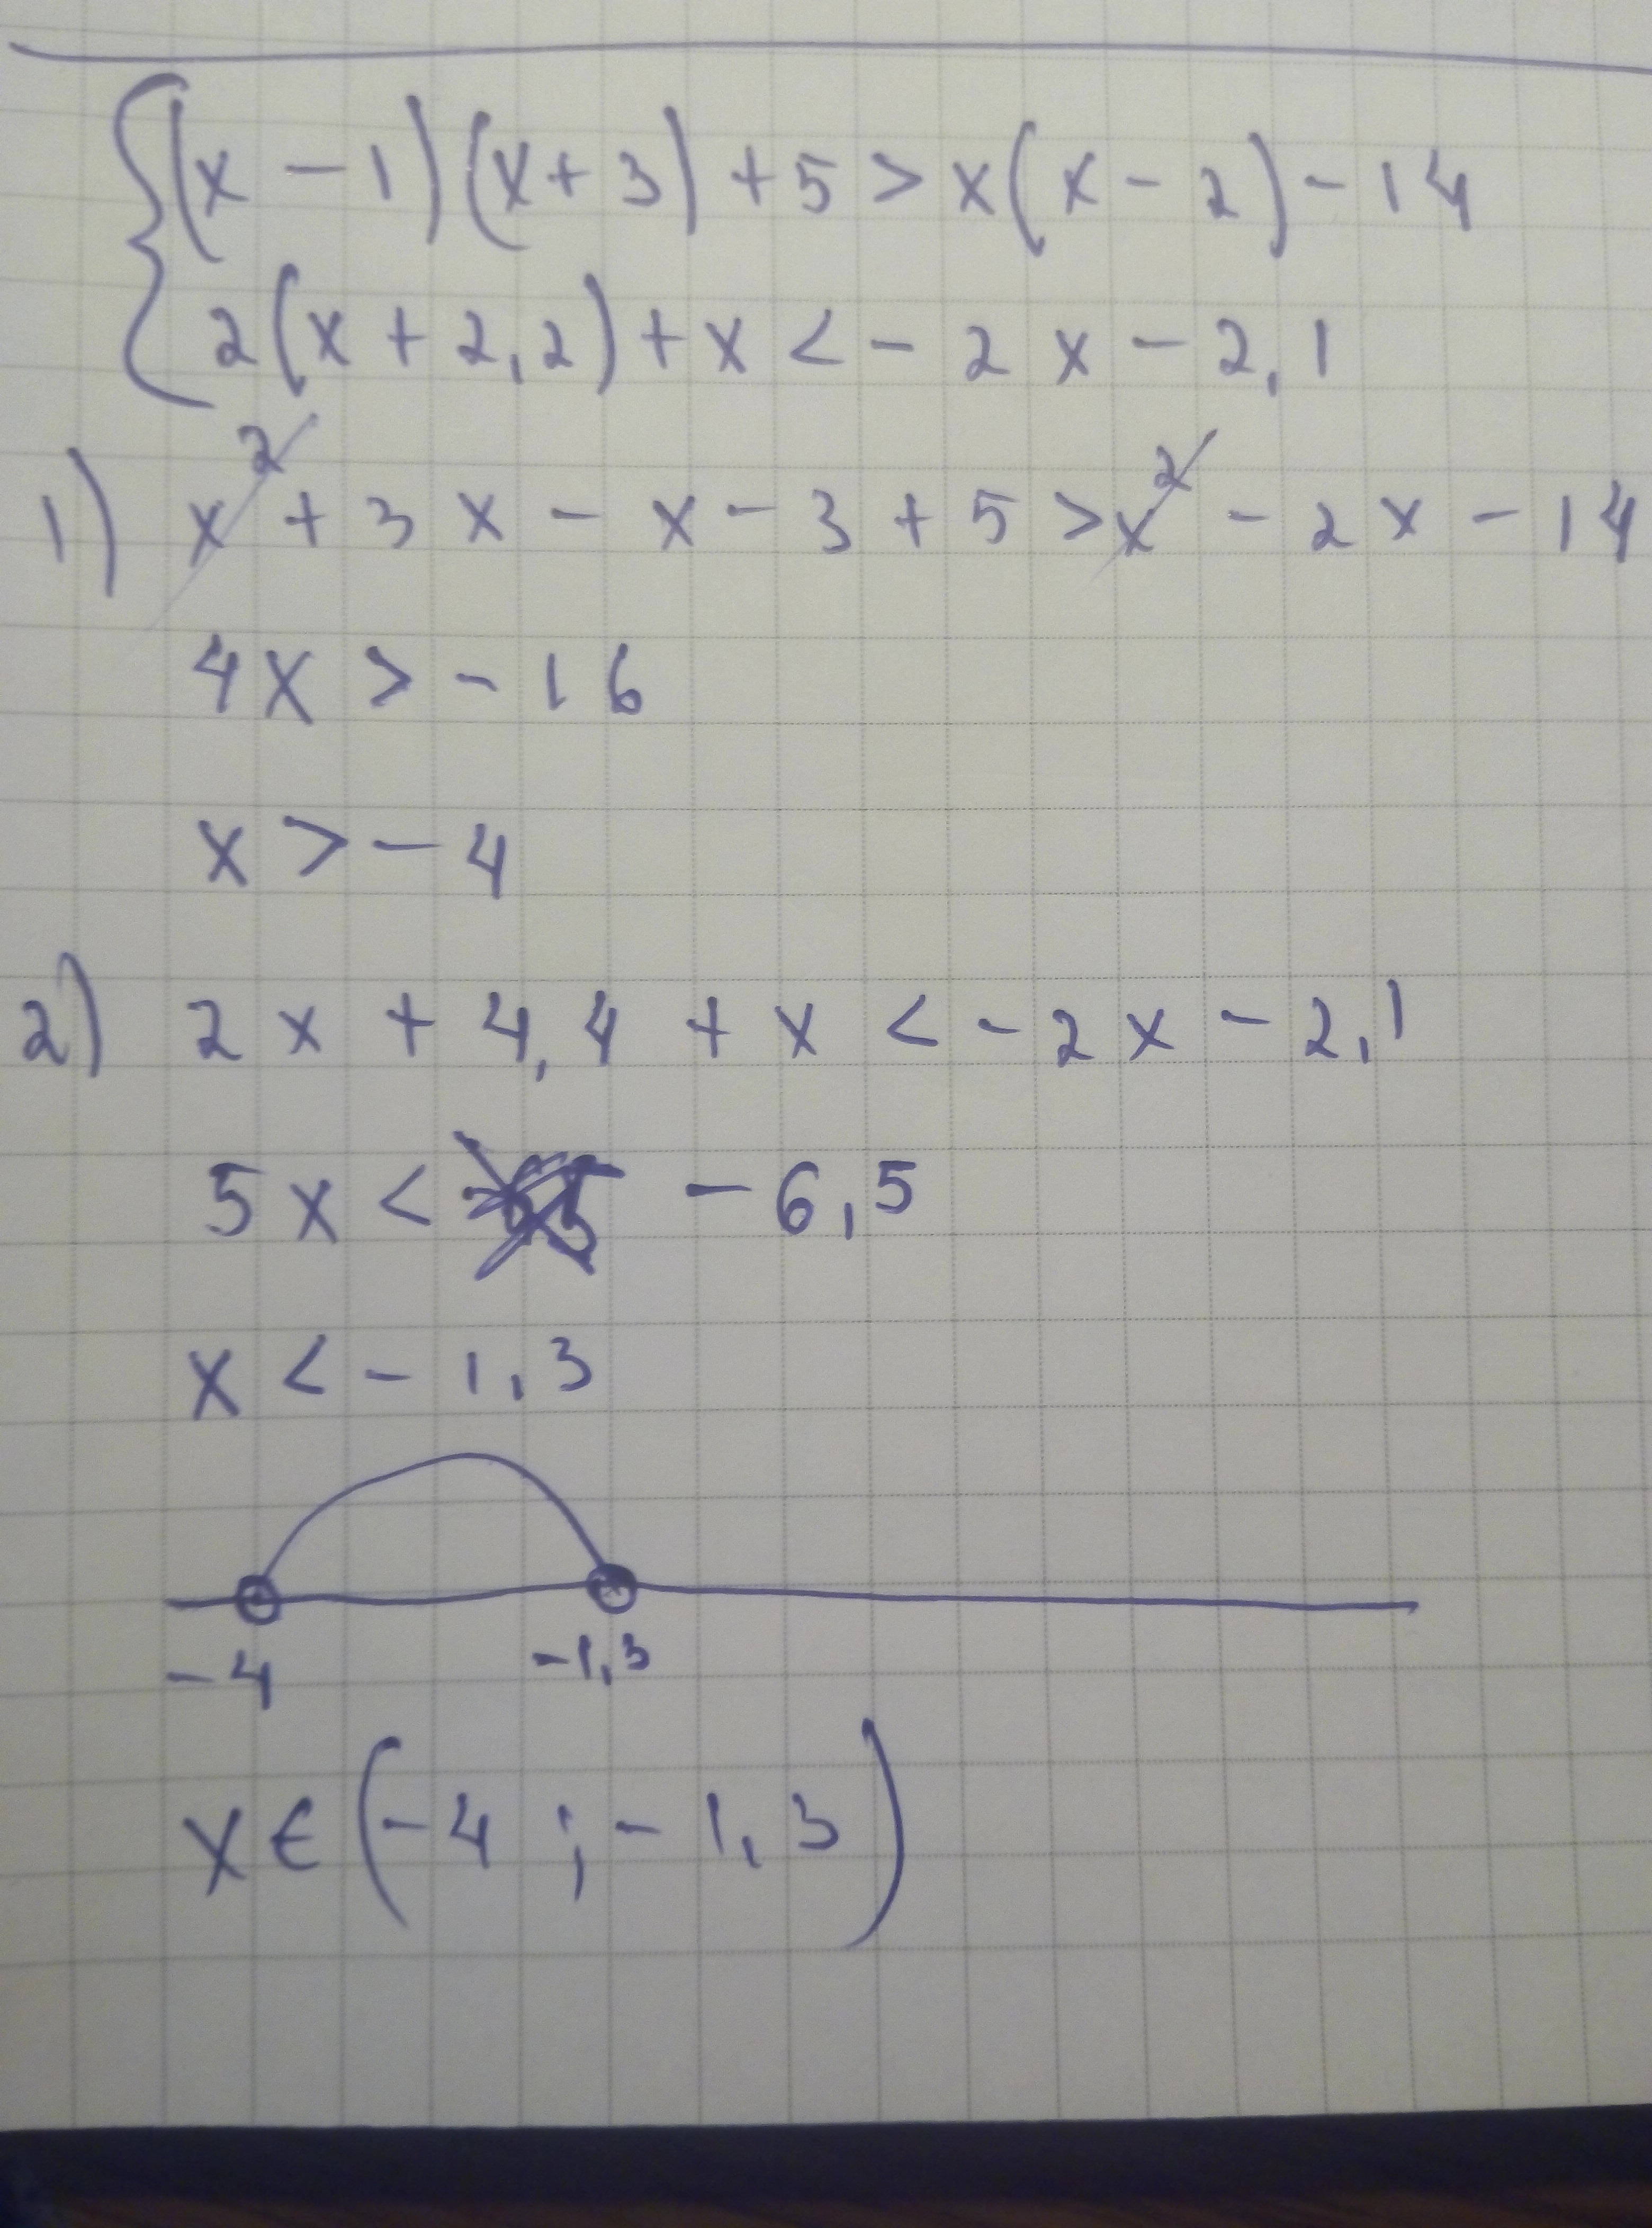 {(x - 1)(x + 3) + 5 > x(x - 2) - 14
2(x + 2,2) + x < - 2x - 2,1
1) x² + 3x - x - 3 + 5 > x² - 2x - 14
4x > - 16
x > - 4
2) 2x + 4,4 + x < - 2x - 2,1
5x < - 6,5
x < - 1,3
-4 -1,3
x ∈ (-4 ; - 1,3)